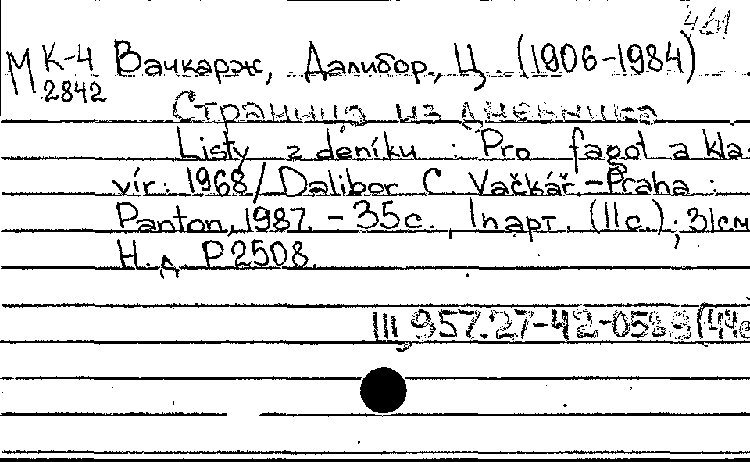 461
М К-4 Вачкарж, Далибор, Ц. (1906-1984)
2842
Страница из дневника
Listy z deníku : Pro fagot a kla-
vír : 1968 / Dalibor C. Vačkář. - Praha :
Panton, 1987. - 35 с., 1 парт. (11 с.) ; 31 см
Н. д. P 2508.